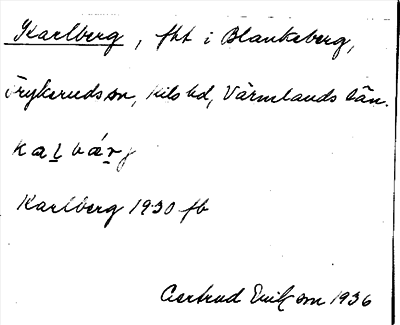 Karlberg, fht i Blankeberg,
Fryksrudssn, Kils hd, Värmlands län.
kaḷbárj
Karlberg 1930 fb
Gertrud Ericson 1936